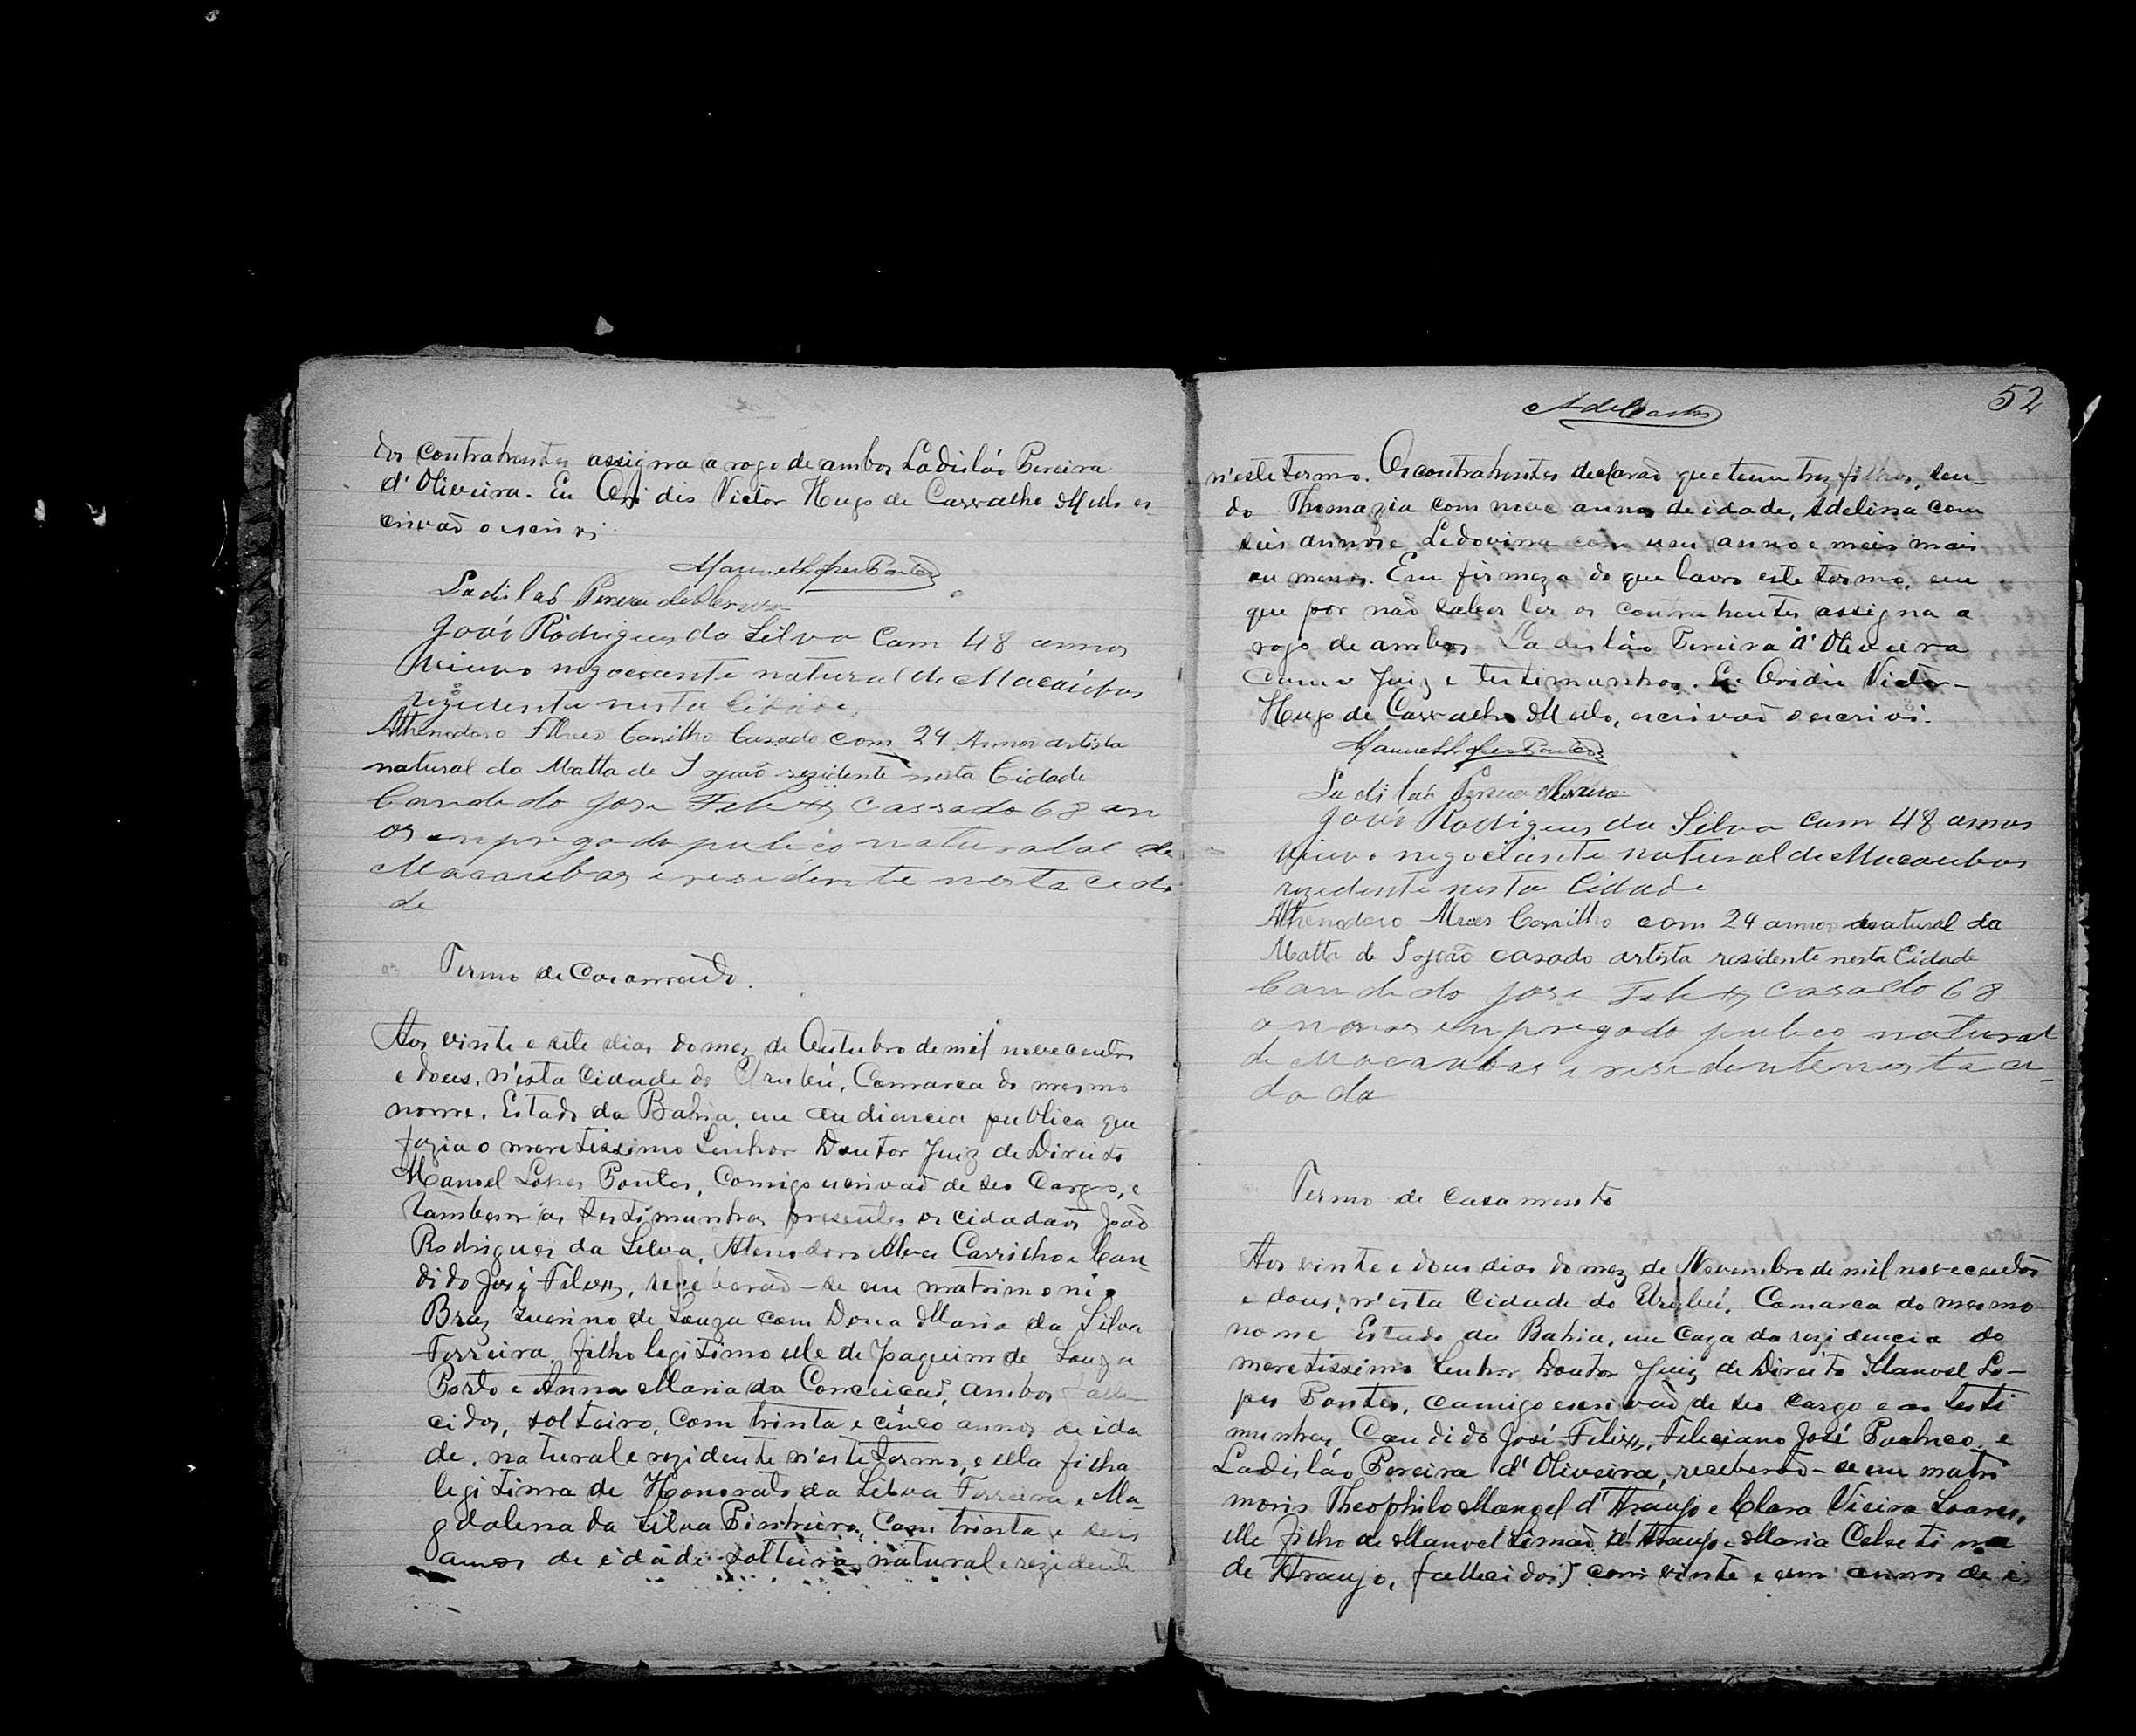 dos contrahentes assigna a rogo de ambos Ladisláo Pereira
d'Oliveira. Eu Victor Hugo de Carvalho Mello es
crivaõ o escrivi
Manuel Lopes Pontes
Ladilaó Pereira
João Rodrigues da Silva Com 48 annos
viuvo negociante natural de Macaúbas
rezidente nesta Cidade
Athenodoro Alves Carrilho Casado com 24 Annos artista
natural da Matta de S joaõ rezidente nesta Cidade
Candido Jose Felix Cassado 68 an
os empregado publico natural de
Macaubas e residente nesta cida
de
Termo de Casamento.
Aos vinte e sete dias do mez de Outubro de mil novecentos
e dous, n'esta Cidade do Urubú, Comarca do mesmo
nome, Estado da Bahia, em audiencia publica que
fazia o meretissimo Senhor Doutor Juiz de Direito
Manoel Lopes Pontes, Comigo escrivaõ de seo Cargo, e
tambem as testimunhas presentes os cidadaõs João
Rodrigues da Silva, Atenodoro Alves Carrilho e Can-
dido José Felix, receberaõ-se em matrimonio
Braz de Souza com Dona Maria da Silva
Ferreira, filho legitimo elle de Joaquim de Souza
Porto e Anna Maria da Conceicaõ, ambos falle
cidos, solteiro, com trinta e cinco annos de ida
de, natural e rezidente n'este termo, e ella filha
legitima de Honorato da Silva Ferreira e Ma-
gdalena da Silva Pinheiro, Com trinta e seis
annos de edade solteira, natural e rezidente
52
n'este termo. Os contrahentes declaraõ que tem trez filhos, sen-
do Thomazia com nove annos de idade, Adelina com
seis annos e Ledovina com um anno e meis mais
ou menos. Em firmeza do que lavro este termo, em
que por naõ saber ler os contrahentes assigna a
rogo de ambos Ladisláo Pereira d'Oliveira
Como Juiz e testimunhas. Eu Victor-
Hugo de Carvalho Mello, escrivaõ o escrivi.
Manuel Lopes Pontes
Ladilaó Pereira
João Rodrigues da Silva com 48 annos
viuvo negociante natural de Macaubas
rezidente nesta Cidade
Athenodoro Alves Carrilho com 24 annos natural da
Matta de S joaõ casado artista residente nesta Cidade
Candido Jose Felix casado 68
annos empregado publico natural
de Macaubas e residente nesta ci-
dada
Termo de Casamento
Aos vinte e dous dias do mez de Novembro de mil novecentos
e dous, n'esta Cidade do Urubú, Comarca do mesmo
nome Estado da Bahia, em caza da rezidencia do
meretissimo Senhor Doutor Juiz de Direito Manoel Lo-
pes Pontes, comigo escrivaõ de seo cargo e as testi
munhas Candido José Felix, Feliciano José Pacheco, e
Ladisláo Pereira d'Oliveira, receberaõ-se em matri
monio Theophilo Mangel d'Araujo e Clara Vieira Soares,
elle filho de Manoel Simaõ d'Araujo e Maria Celestina
de Araujo, (fallecidos) com vinte e um annos de i